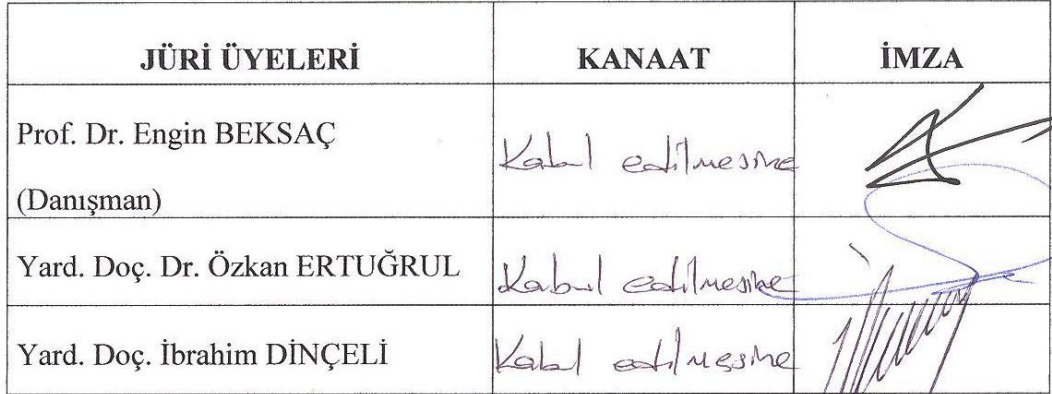 JÜRİ ÜYELERİ KANAAT İMZA
Prof. Dr. Engin BEKSAÇ
(Danışman) Kabul edilmesine
Yard. Doç. Dr. Özkan ERTUĞRUL Kabul edilmesine
Yard. Doç. İbrahim DİNÇELİ Kabul edilmesine